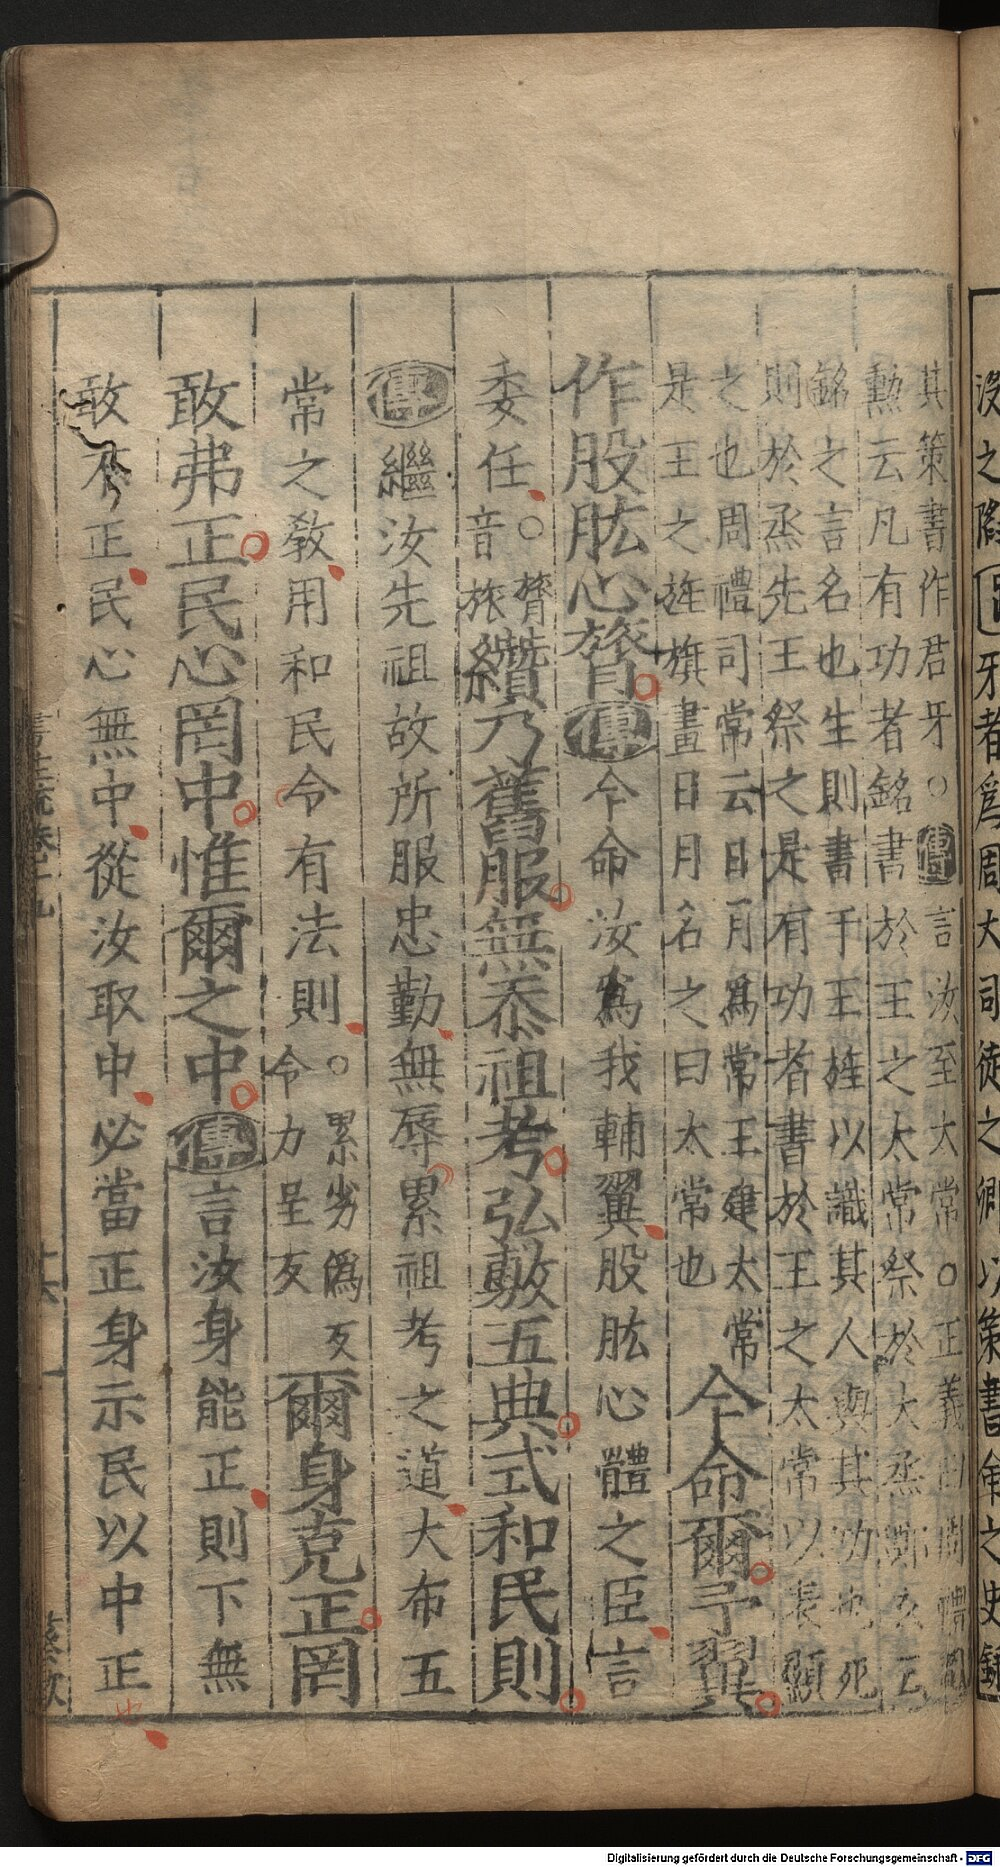 没之際牙者爲周大司徒之卿以策書命之史錄
其策書作君牙○傳言汝至大常○正義曰周禮司
勲云凡有功者銘書於王之太常祭於大烝鄭玄云
銘之言名也生則書于王旌以識其人與其功也死
則於烝先王祭之是有功者書於王之太常以表顯
之也周禮司常云日月爲常王建太常
是王之旌旗畫日月名之曰太常也
今命爾予翼
作股肱心膂傳今命汝爲我輔翼股肱心體之臣言
委任○膂音旅纘乃舊服無忝祖考弘敷五典式和民則
傳繼汝先祖故所服忠勤無辱累祖考之道大布五
常之敎用和民令有法則○累劣僞反令力呈反爾身克正罔
敢弗正民心罔中惟爾之中傳言汝身能正則下無
敢不正民心無中從汝取中必當正身示民以中正也
書注疏卷十九 十六
Digitalisierung gefördert durch die Deutsche Forschungsgemeinschaft - DFG